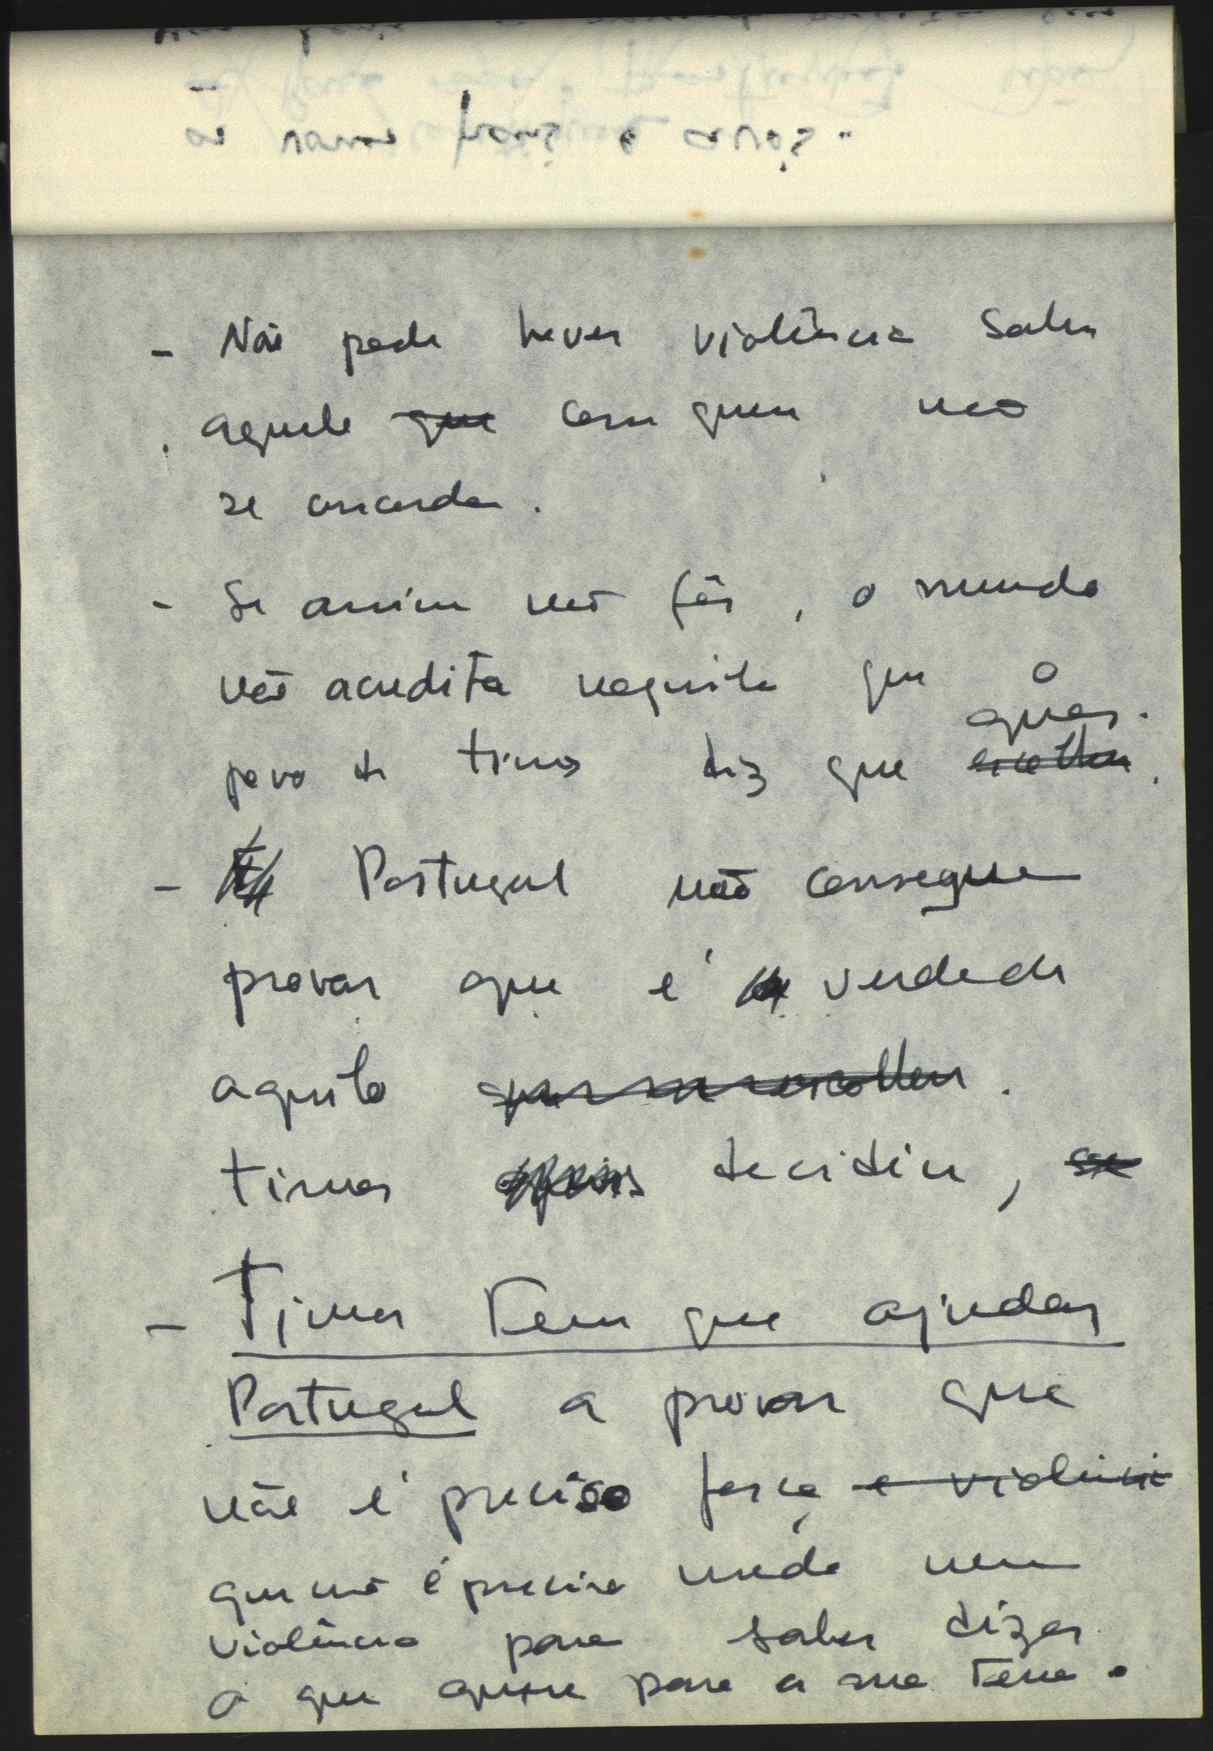 os vossos pais e avós.
- Não pode haver violência sobre
aquele ~~que~~ com quem não
se concorda.
- Se assim não fôr, o mundo
não acredita naquilo que o
povo de timor diz que ~~escolheu~~ quer.
- Portugal não consegue
provar que é verdade
aquilo ~~que escolheu~~.
timor decidiu, ~~se~~
- Timor tem que ajudar
Portugal a provar que
não é preciso força ~~e violência~~
que não é preciso medo nem
violência para saber dizer
o que quere para a sua terra.